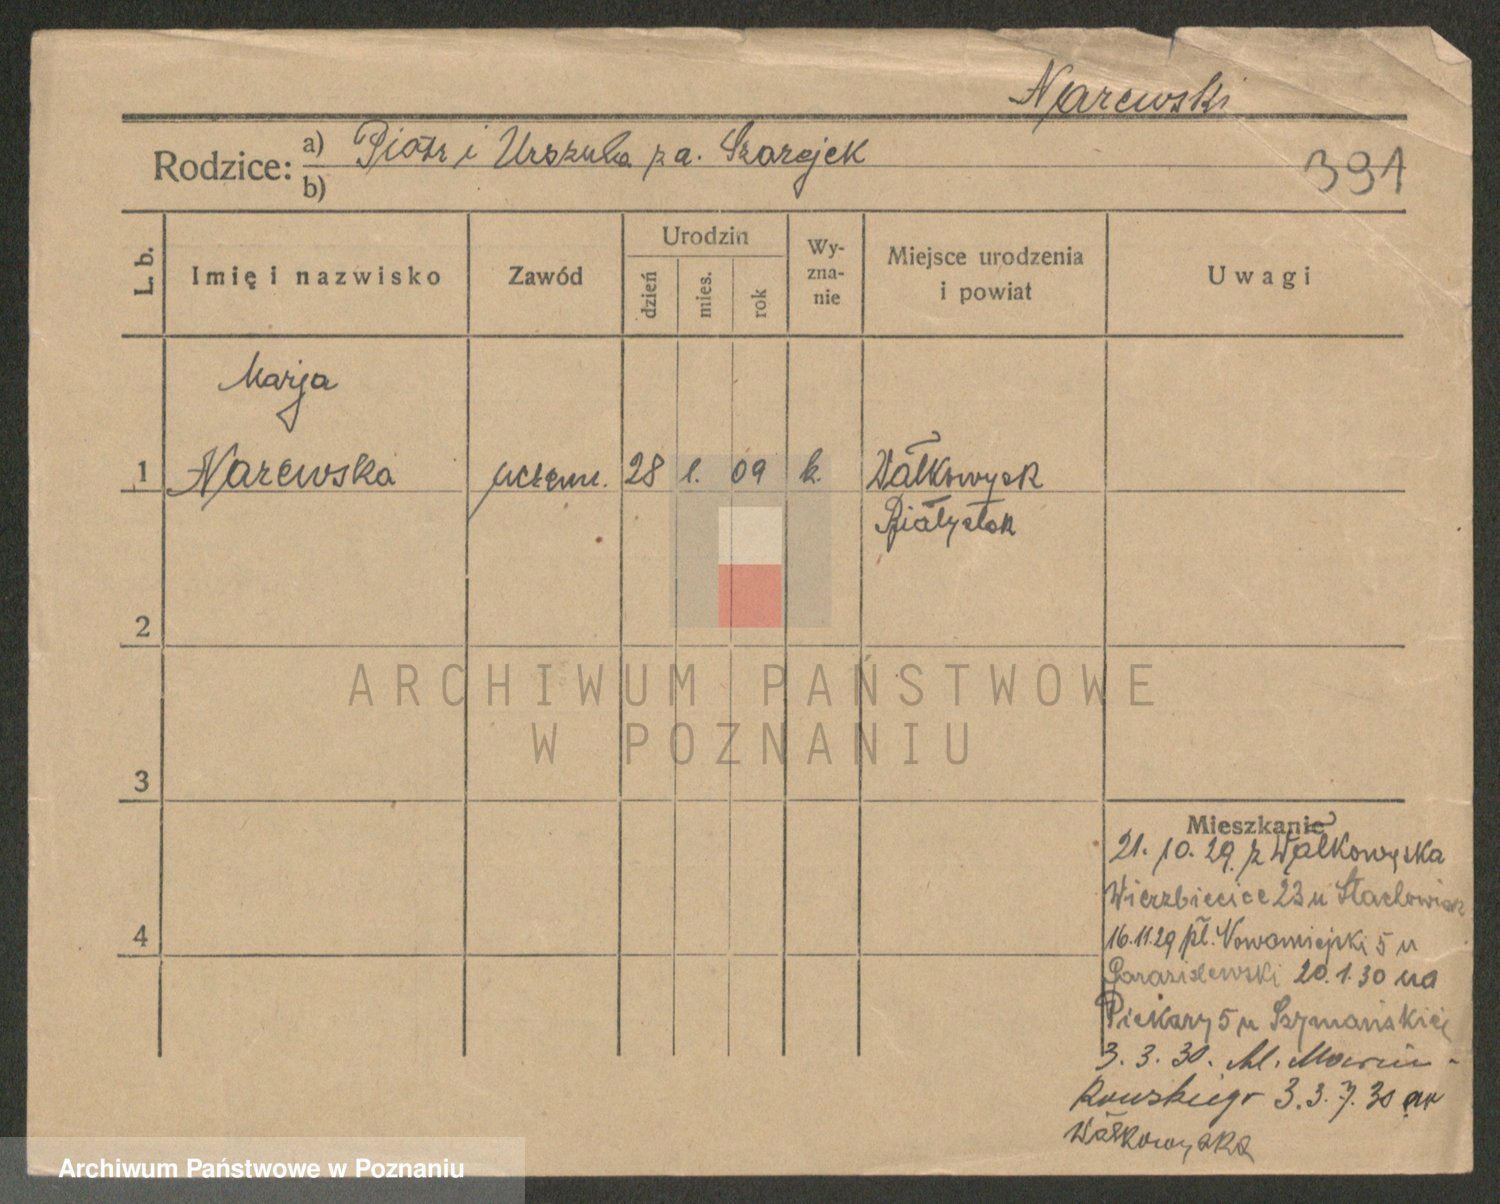 Narewski
Rodzice: a) Piotr i Urszula z d. Szarejek
b)
391
L. b.
Imię i nazwisko
Zawód
Urodzin
dzień
mies.
rok
Wy-
zna-
nie
Miejsce urodzenia
i powiat
Uwagi
Marja
1 Narewska uczenn. 28 1. 09 k. Wałkowysk
Białystok
2
ARCHIWUM PAŃSTWOWE
W POZNANIU
3
Mieszkanie
21. 10. 29. z Wałkowyska
Wierzbięcice 23 u Stachowiak
4
16.11.29 pl. Nowomiejski 5 u
20.1.30 na
Piekary 5 u Szymańskiej
3. 3. 30. Al. Marcin-
kowskiego 3. 3. 7. 30 do
Wałkowyska
Archiwum Państwowe w Poznaniu